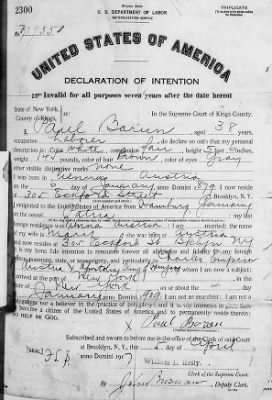 2300
U. S. DEPARTMENT OF LABOR
NATURALIZATION SERVICE
TRIPLICATE
UNITED STATES OF AMERICA
DECLARATION OF INTENTION
Invalid for all purposes seven years after the date hereof
State of New York,
County of Kings,
In the Supreme Court of Kings County.
I, Paul Borun, aged 38 years,
occupation Laborer, do declare on oath that my personal
description is: Color White, complexion fair, height 5 feet inches,
weight 145 pounds, color of hair Brown, color of eyes Gray
other visible distinctive marks none
I was born in Austria
on the day of January, anno Domini 1879; I now reside
at 305 Eckford Street, Brooklyn, N.Y.
I emigrated to the United States of America from Hamburg Germany
on the vessel Patria; my last
foreign residence was Austria; I am married; the name
of my wife is; she was born at Austria
and now resides at 305 Eckford St Bklyn NY
It is my bona fide intention to renounce forever all allegiance and fidelity to any foreign
prince, potentate, state, or sovereignty, and particularly to Charles Emperor
of Austria & Apostolic King of Hungary of whom I am now a subject;
I arrived at the port of New York, in the
State of New York, on or about the day
of January, anno Domini 1909; I am not an anarchist; I am not a
polygamist nor a believer in the practice of polygamy; and it is my intention in good faith
to become a citizen of the United States of America and to permanently reside therein:
SO HELP ME GOD.
Subscribed and sworn to before me in the office of the Clerk of said Court
at Brooklyn, N. Y., this day of April
[SEAL] anno Domini 1917
William F. Kelly,
Clerk of the Supreme Court.
By Deputy Clerk.